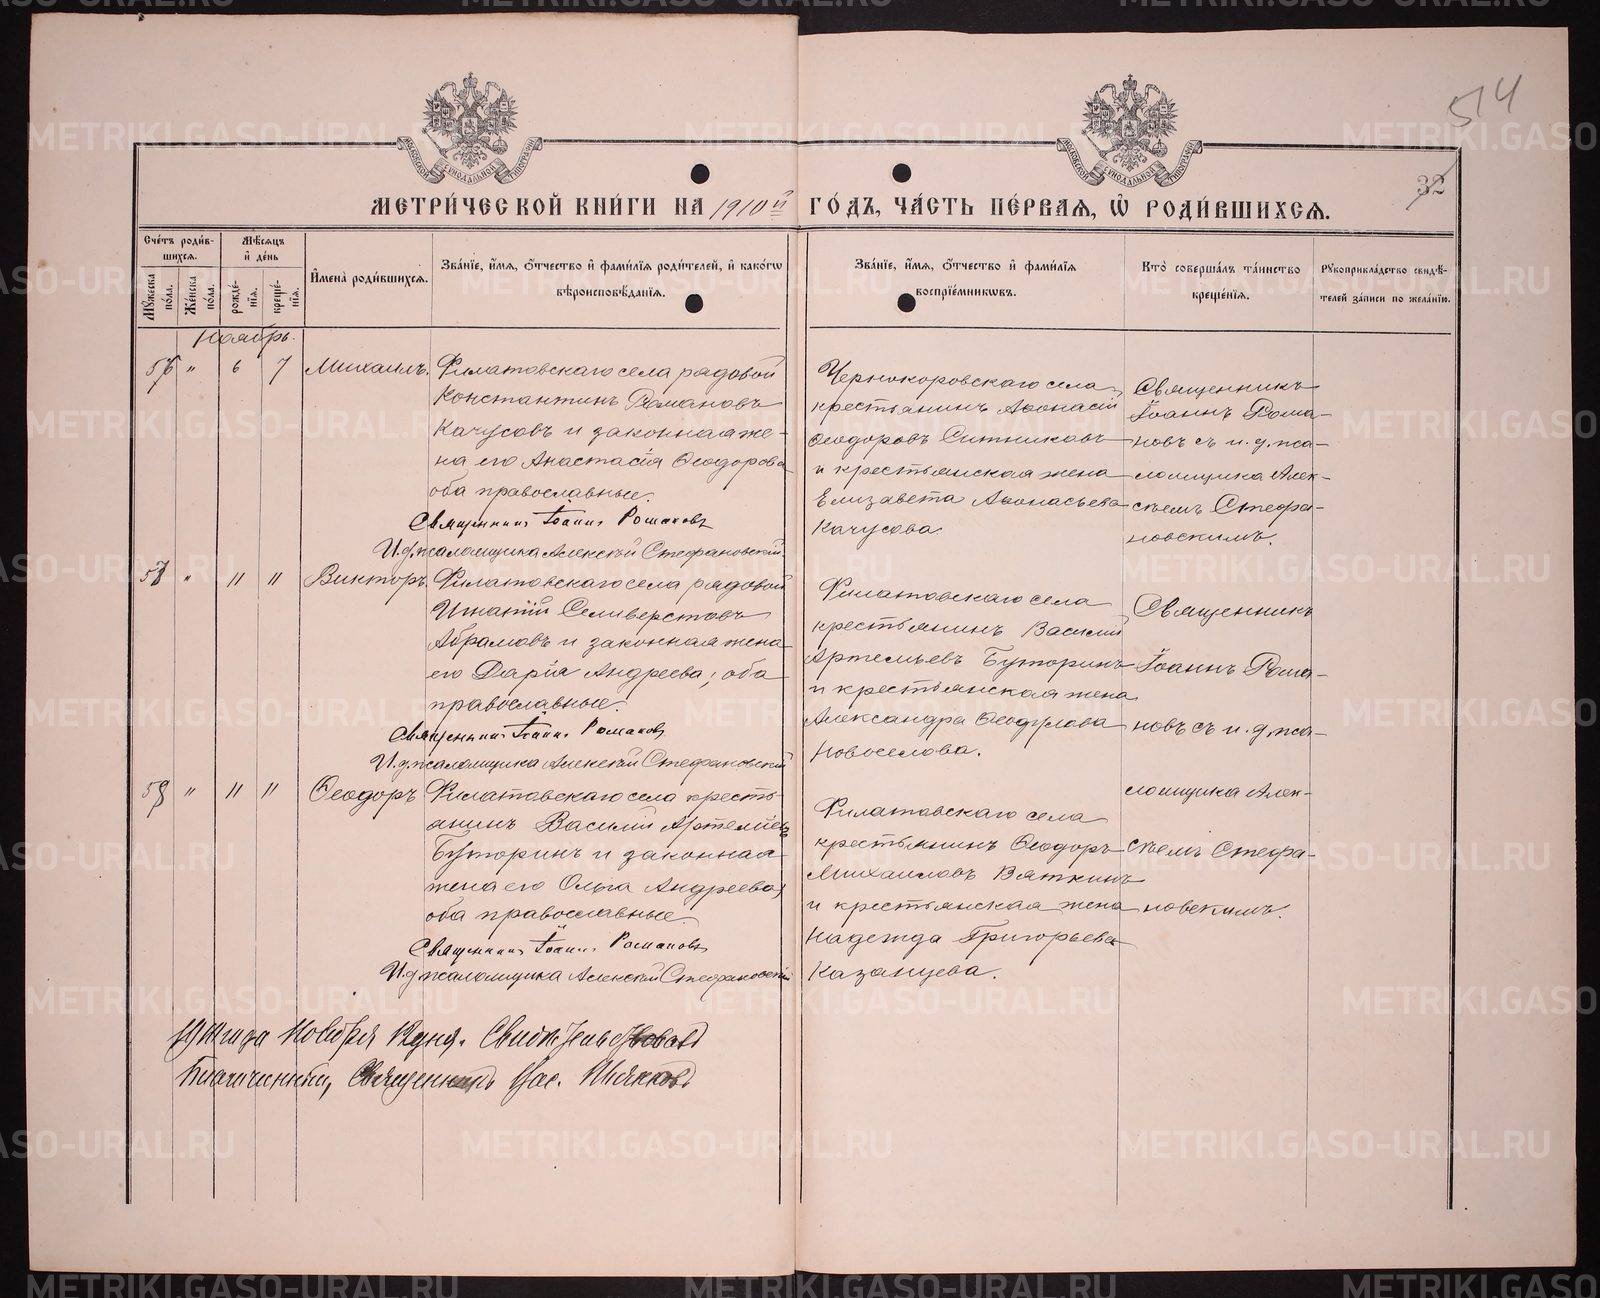 514
32
МЕТРИ́ЧЕСКОЙ КНИ́ГИ НА 1910й ГО́ДЪ, ЧА́СТЬ ПЕ́РВАЯ, Ѡ РОДИ́ВШИХСЯ.
Сче́тъ роди́вшихся.
Му́жеска по́ла.
Же́нска по́ла.
Мѣ́сяцъ и҆ де́нь
рожде́нїя.
креще́нїя.
И҆мена̀ роди́вшихся.
Зва́нїе, и҆́мя, ѻ҆́тчество и҆ фами́лїя роди́телей, и҆ како́гѡ
вѣроисповѣ́данїя.
Зва́нїе, и҆́мя, ѻ҆́тчество и҆ фами́лїя
воспрїе́мникѡвъ.
Кто̀ соверша́лъ та́инство
креще́нїя.
Рꙋкоприкла́дство свидѣ́-
телей за́писи по жела́нїю.
Ноябрь.
" 6 7 Михаилъ.
Филатовскаго села рядовой
Константинъ Романовъ
Качусовъ и законная же-
на его Анастасія Ѳеодорова
оба православные.
Священникъ Іоаннъ Романовъ
И.д. псаломщика Алексѣй Стефановскій.
Чернокоровскаго села,
крестьянинъ Аѳонасій
Ѳеодоровъ Ситниковъ
и крестьянская жена
Елизавета Аѳонасьева
Качусова
Священникъ
Іоаннъ Рома-
новъ съ и. д. пса-
ломщика Алек-
сѣемъ Стефа-
новскимъ.
" 11 11 Викторъ.
Филатовскаго села рядовой
Игнатій Селиверстовъ
Абрамовъ и законная жена
его Дарія Андреева; оба
православные.
Священникъ Іоаннъ Романовъ
И.д. псаломщика Алексѣй Стефановскій
Филатовскаго села
крестьянинъ Василій
Артемьевъ Буторинъ
и крестьянская жена
Александра Ѳеодулова
Новоселова.
Священникъ
Іоаннъ Рома-
новъ съ и. д. пса-
ломщика Алек-
сѣемъ Стефа-
новскимъ.
" 11 11 Ѳеодоръ
Филатовскаго села кресть-
янинъ Василій Артемьевъ
Буторинъ и законная
жена его Ольга Андреева;
оба православные.
Священникъ Іоаннъ Романовъ
И.д. псаломщика Алексѣй Стефановскій
Филатовскаго села
крестьянинъ Ѳеодоръ
Михаиловъ Вяткинъ
и крестьянская жена
Надежда Григорьева
Казанцева.
Ноября дня. Свидѣтельствовалъ
Благочинный, Священникъ
METRIKI.GASO-URAL.RU